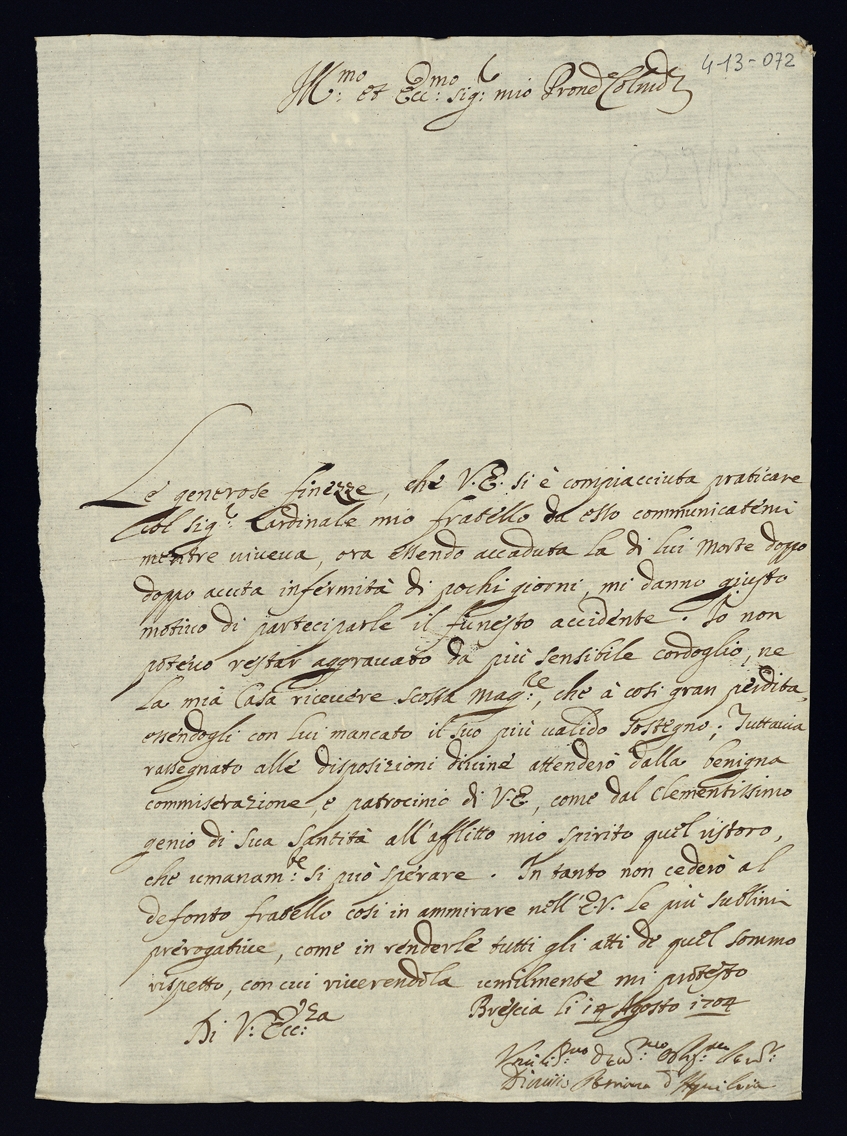 4-13-072
Ill.mo et Ecc.mo Sig.r mio Prone Colmo
Le generose finezze, che V.E. si è compiacciuta praticare
col sig.r Cardinale mio fratello da esso communicatemi
mentre viveva, ora essendo accaduta la di lui morte doppo
doppo acuta infermità di pochi giorni, mi danno giusto
motivo di parteciparle il funesto accidente. Io non
potevo restar aggravato da più sensibile cordoglio, ne
la mia Casa ricevere scossa mag.re, che à cosi gran perdita,
essendogli con lui mancato il suo più valido sostegno; Tuttavia
rassegnato alle disposizioni divine attenderò dalla benigna
commiserazione, e patrocinio di V.E, come dal Clementissimo
genio di Sua Santità all'afflitto mio spirito quel ristoro,
che umanam.te si può sperare. In tanto non cederò al
defonto fratello cosi in ammirare nell'E.V. le più sublimi
prerogative, come in renderle tutti gli atti de quel sommo
rispetto, con cui riverendola umilmente mi protesto
Di V. Ecc.za
Brescia li 14 Agosto 1704